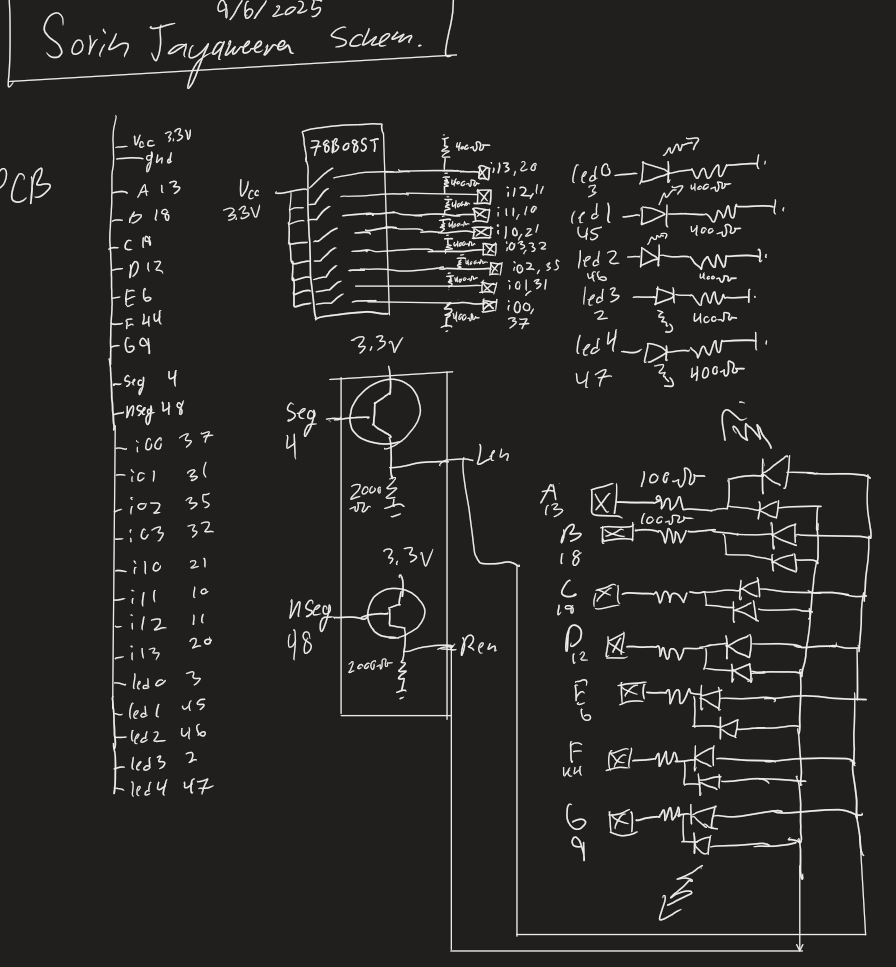 9/6/2025
Sorin Jayaweera Schem.
PCB
Vcc 3.3V
gnd
A 13
B 18
C 19
D 12
E 6
F 44
G 9
Seg 4
nseg 48
i00 37
i01 31
i02 35
i03 32
i10 21
i11 10
i12 11
i13 20
led0 3
led1 45
led2 46
led3 2
led4 47
78B08ST
Vcc
3.3V
400Ω
i13, 20
400Ω
i12, 11
400Ω
i11, 10
400Ω
i10, 21
400Ω
i03, 32
400Ω
i02, 35
400Ω
i01, 31
400Ω
i00,
37
led0
3
400Ω
led1
45
400Ω
led2
46
400Ω
led3
2
400Ω
led4
47
400Ω
3.3V
Seg
4
Len
2000
Ω
3.3V
nseg
48
Ren
2000Ω
A
13
100Ω
B
18
100Ω
C
19
D
12
E
6
F
44
G
9